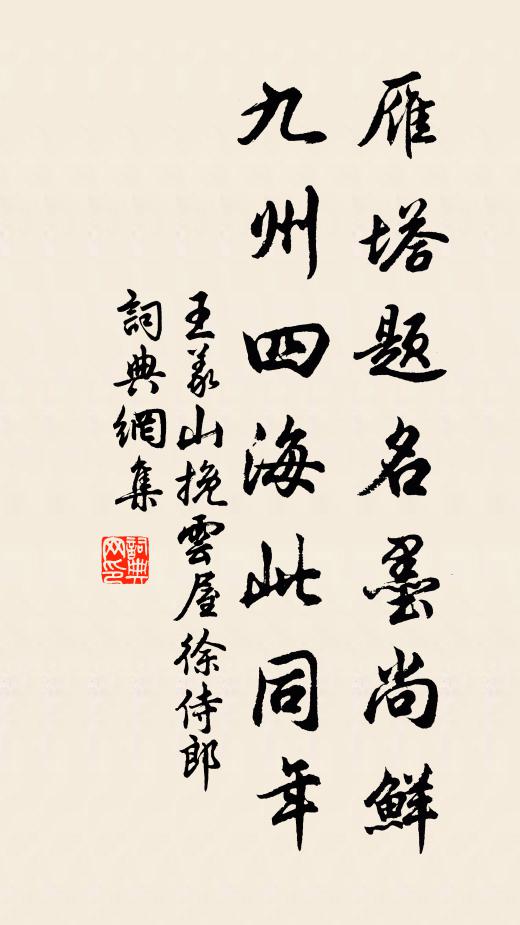 雁塔題名墨尚鮮
九州四海此同年
王義山挽雲屋徐侍郎
詞典網集
詞典网印